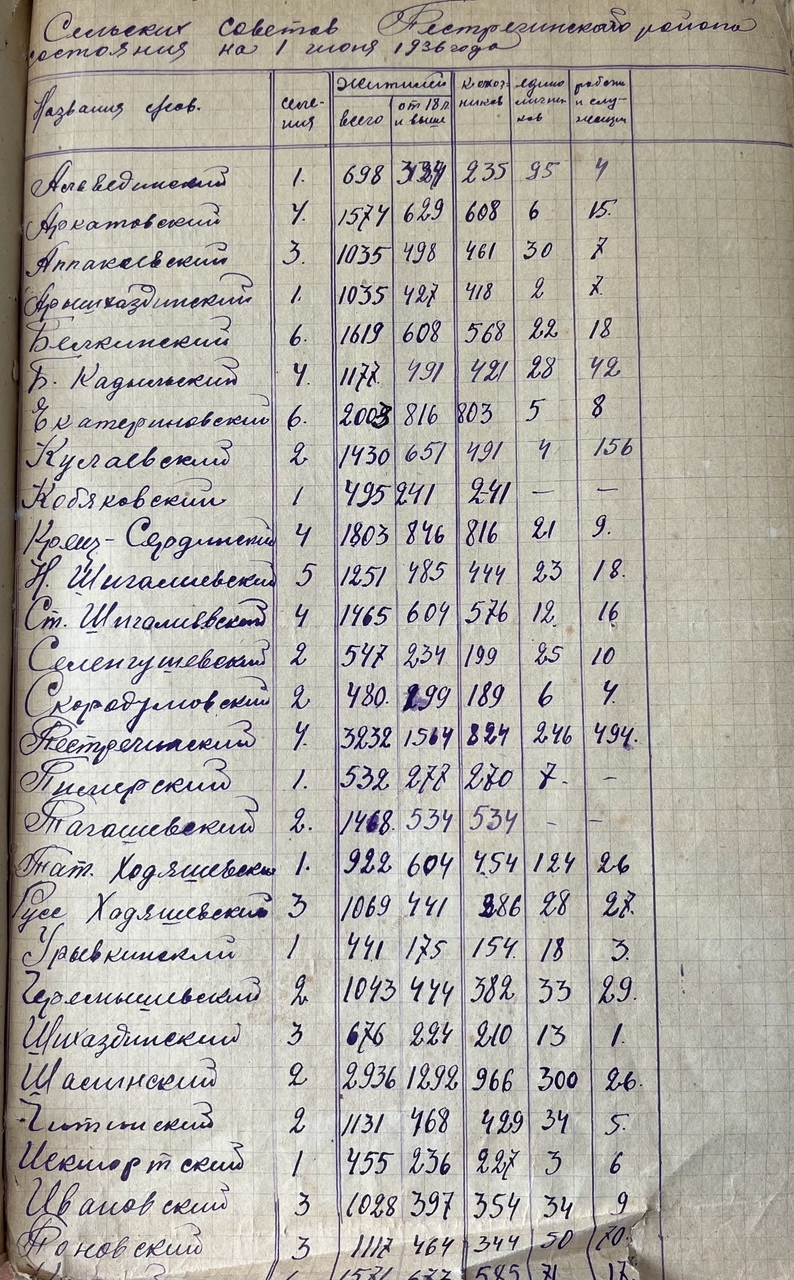 Сельских советов Пестречинского района
состояния на 1 июня 1936 года
Названия сов. селе-ния Жителей всего от 18 л и выше колхоз-ников едино лични-ков рабочи и слу-жащи
Альведински 1. 698 235 25 4
Аркатовский 4. 1574 629 608 6 15.
Аппакаевский 3. 1035 498 461 30 7
Арышхаздинский 1. 1035 427 418 2 7.
Белкинский 6. 1619 608 568 22 18
Б. Кадыльский 4. 1177. 491 421 28 42
Екатериновский 6. 2003 816 803 5 8
Кулаевский 2 1430 651 491 4 156
Кобяковский 1 495 241 241 — —
Крещ-Сердинский 4 1803 846 816 21 9.
Н. Шигалиевский 5 1251 485 444 23 18.
Ст. Шигалиевский 4 1465 604 576 12. 16
Селенгушевский 2 547 234 199 25 10
Скородумовский 2 480. 199 189 6 4.
Пестречинский 4. 3232 1564 824 246 494.
Пимерский 1. 532 277 270 7. –
Тагашевский 2. 1468. 534 534 – –
Тат. Ходяшевски 1. 922 604 454 124 26
Русс Ходяшевский 3 1069 441 386 28 27.
Урывкинский 1 441 175 154. 18 3.
Черемышевский 2 1043 444 382 33 29.
Шихаздинский 3 676 224 210 13 1.
Шалинский 2 2936 1292 966 300 26.
Читинский 2 1131 468 429 34 5.
Иекшортский 1 455 236 227 3 6
Ивановский 3 1028 397 354 34 9
Пановский 3 1117 464 344 50 70.
1571 677 585 71 17.